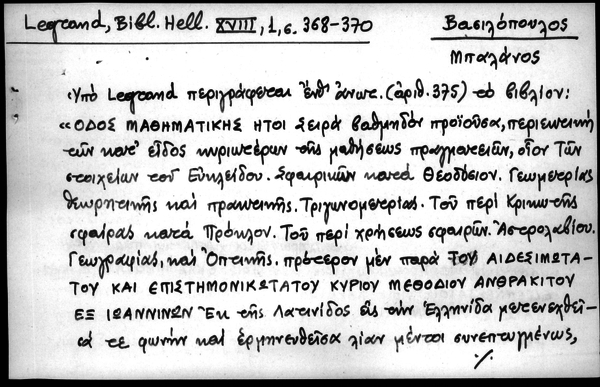 Legrand, Bibl. Hell. XVIII, 1, σ. 368-370
Βασιλόπουλος
Μπαλάνος
Ὑπὸ Legrand περιγράφεται ἔνθ' ἀνωτ. (ἀριθ. 375) τὸ βιβλίον:
«ΟΔΟΣ ΜΑΘΗΜΑΤΙΚΗΣ ΗΤΟΙ Σειρὰ βαθμηδὸν προϊοῦσα, περιεκτικὴ
τῶν κατ' εἶδος κυριωτέρων τῆς μαθήσεως πραγματειῶν, οἷον Τῶν
στοιχείων τοῦ Εὐκλείδου. Σφαιρικῶν κατὰ Θεοδόσιον. Γεωμετρίας
θεωρητικῆς καὶ πρακτικῆς. Τριγωνομετρίας. Τοῦ περὶ Κρικωτῆς
σφαίρας κατὰ Πρόκλον. Τοῦ περὶ χρήσεως σφαιρῶν. Ἀστρολαβίου.
Γεωγραφίας, καὶ Ὀπτικῆς. πρότερον μὲν παρὰ ΤΟΥ ΑΙΔΕΣΙΜΩΤΑ-
ΤΟΥ ΚΑΙ ΕΠΙΣΤΗΜΟΝΙΚΩΤΑΤΟΥ ΚΥΡΙΟΥ ΜΕΘΟΔΙΟΥ ΑΝΘΡΑΚΙΤΟΥ
ΕΞ ΙΩΑΝΝΙΝΩΝ Ἐκ τῆς Λατινίδος εἰς τὴν Ἑλληνίδα μετενεχθεῖ-
σά τε φωνὴν καὶ ἑρμηνευθεῖσα λίαν μέντοι συνεπτυγμένως,
./.